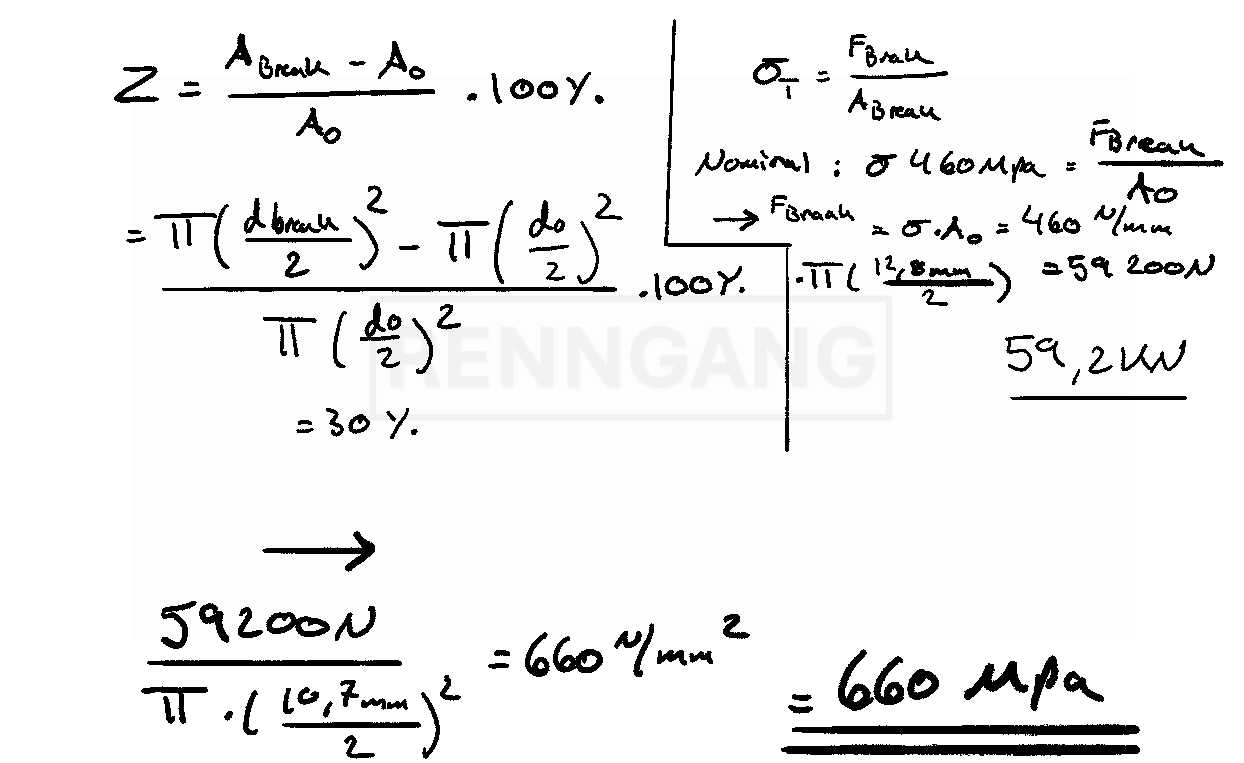 Z = (A_Break - A_0) / A_0 . 100 %.
= (π(d_break/2)^2 - π(d_0/2)^2) / (π(d_0/2)^2) . 100 %.
= 30 %.
σ_T = F_Break / A_Break
Nominal : σ 460 Mpa = F_Break / A_0
→ F_Break = σ . A_0 = 460 N/mm
. π (12,8mm / 2) = 59 200N
59,2 kN
RENNGANG
→
59200N / (π . (10,7mm / 2)^2) = 660 N/mm^2
= 660 Mpa